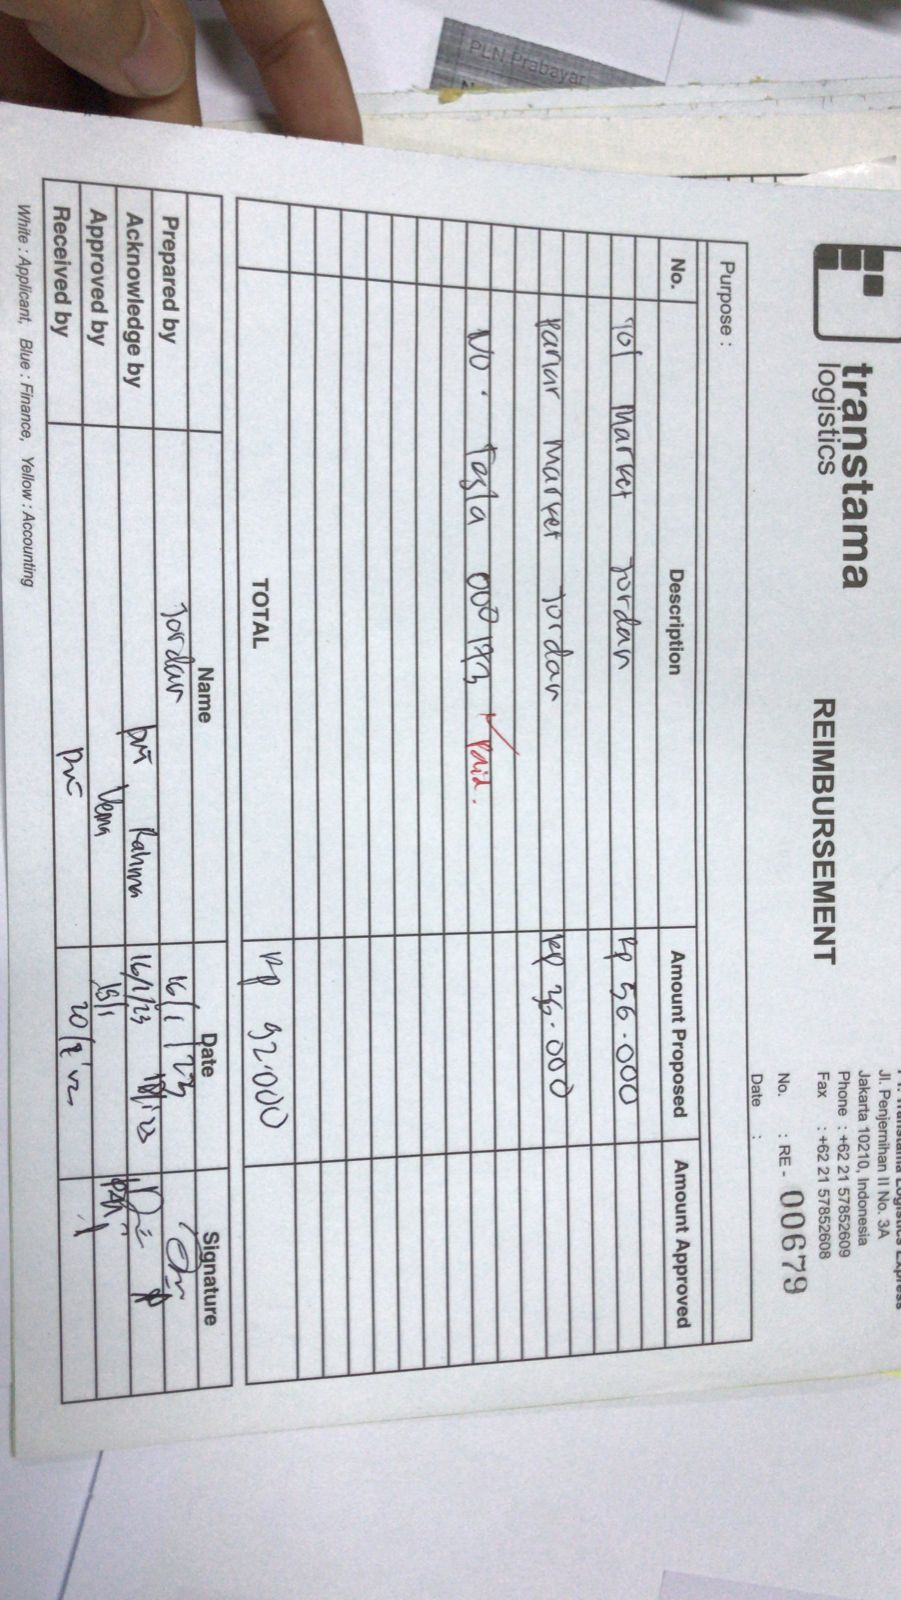 PLN Prabayar
transtama
logistics
REIMBURSEMENT
Jl. Penjernihan II No. 3A
Jakarta 10210, Indonesia
Phone : +62 21 57852609
Fax : +62 21 57852608
No. : RE - 00679
Date :
Purpose :
No. Description Amount Proposed Amount Approved
Tol Market Jordan Rp 56.000
Market Jordan Rp 36.000
No. Paid.
TOTAL Rp 92.000
Name Date Signature
Prepared by Jordan 16/1/23
Acknowledge by Rahma 16/1/23
Approved by
Received by
White : Applicant, Blue : Finance, Yellow : Accounting